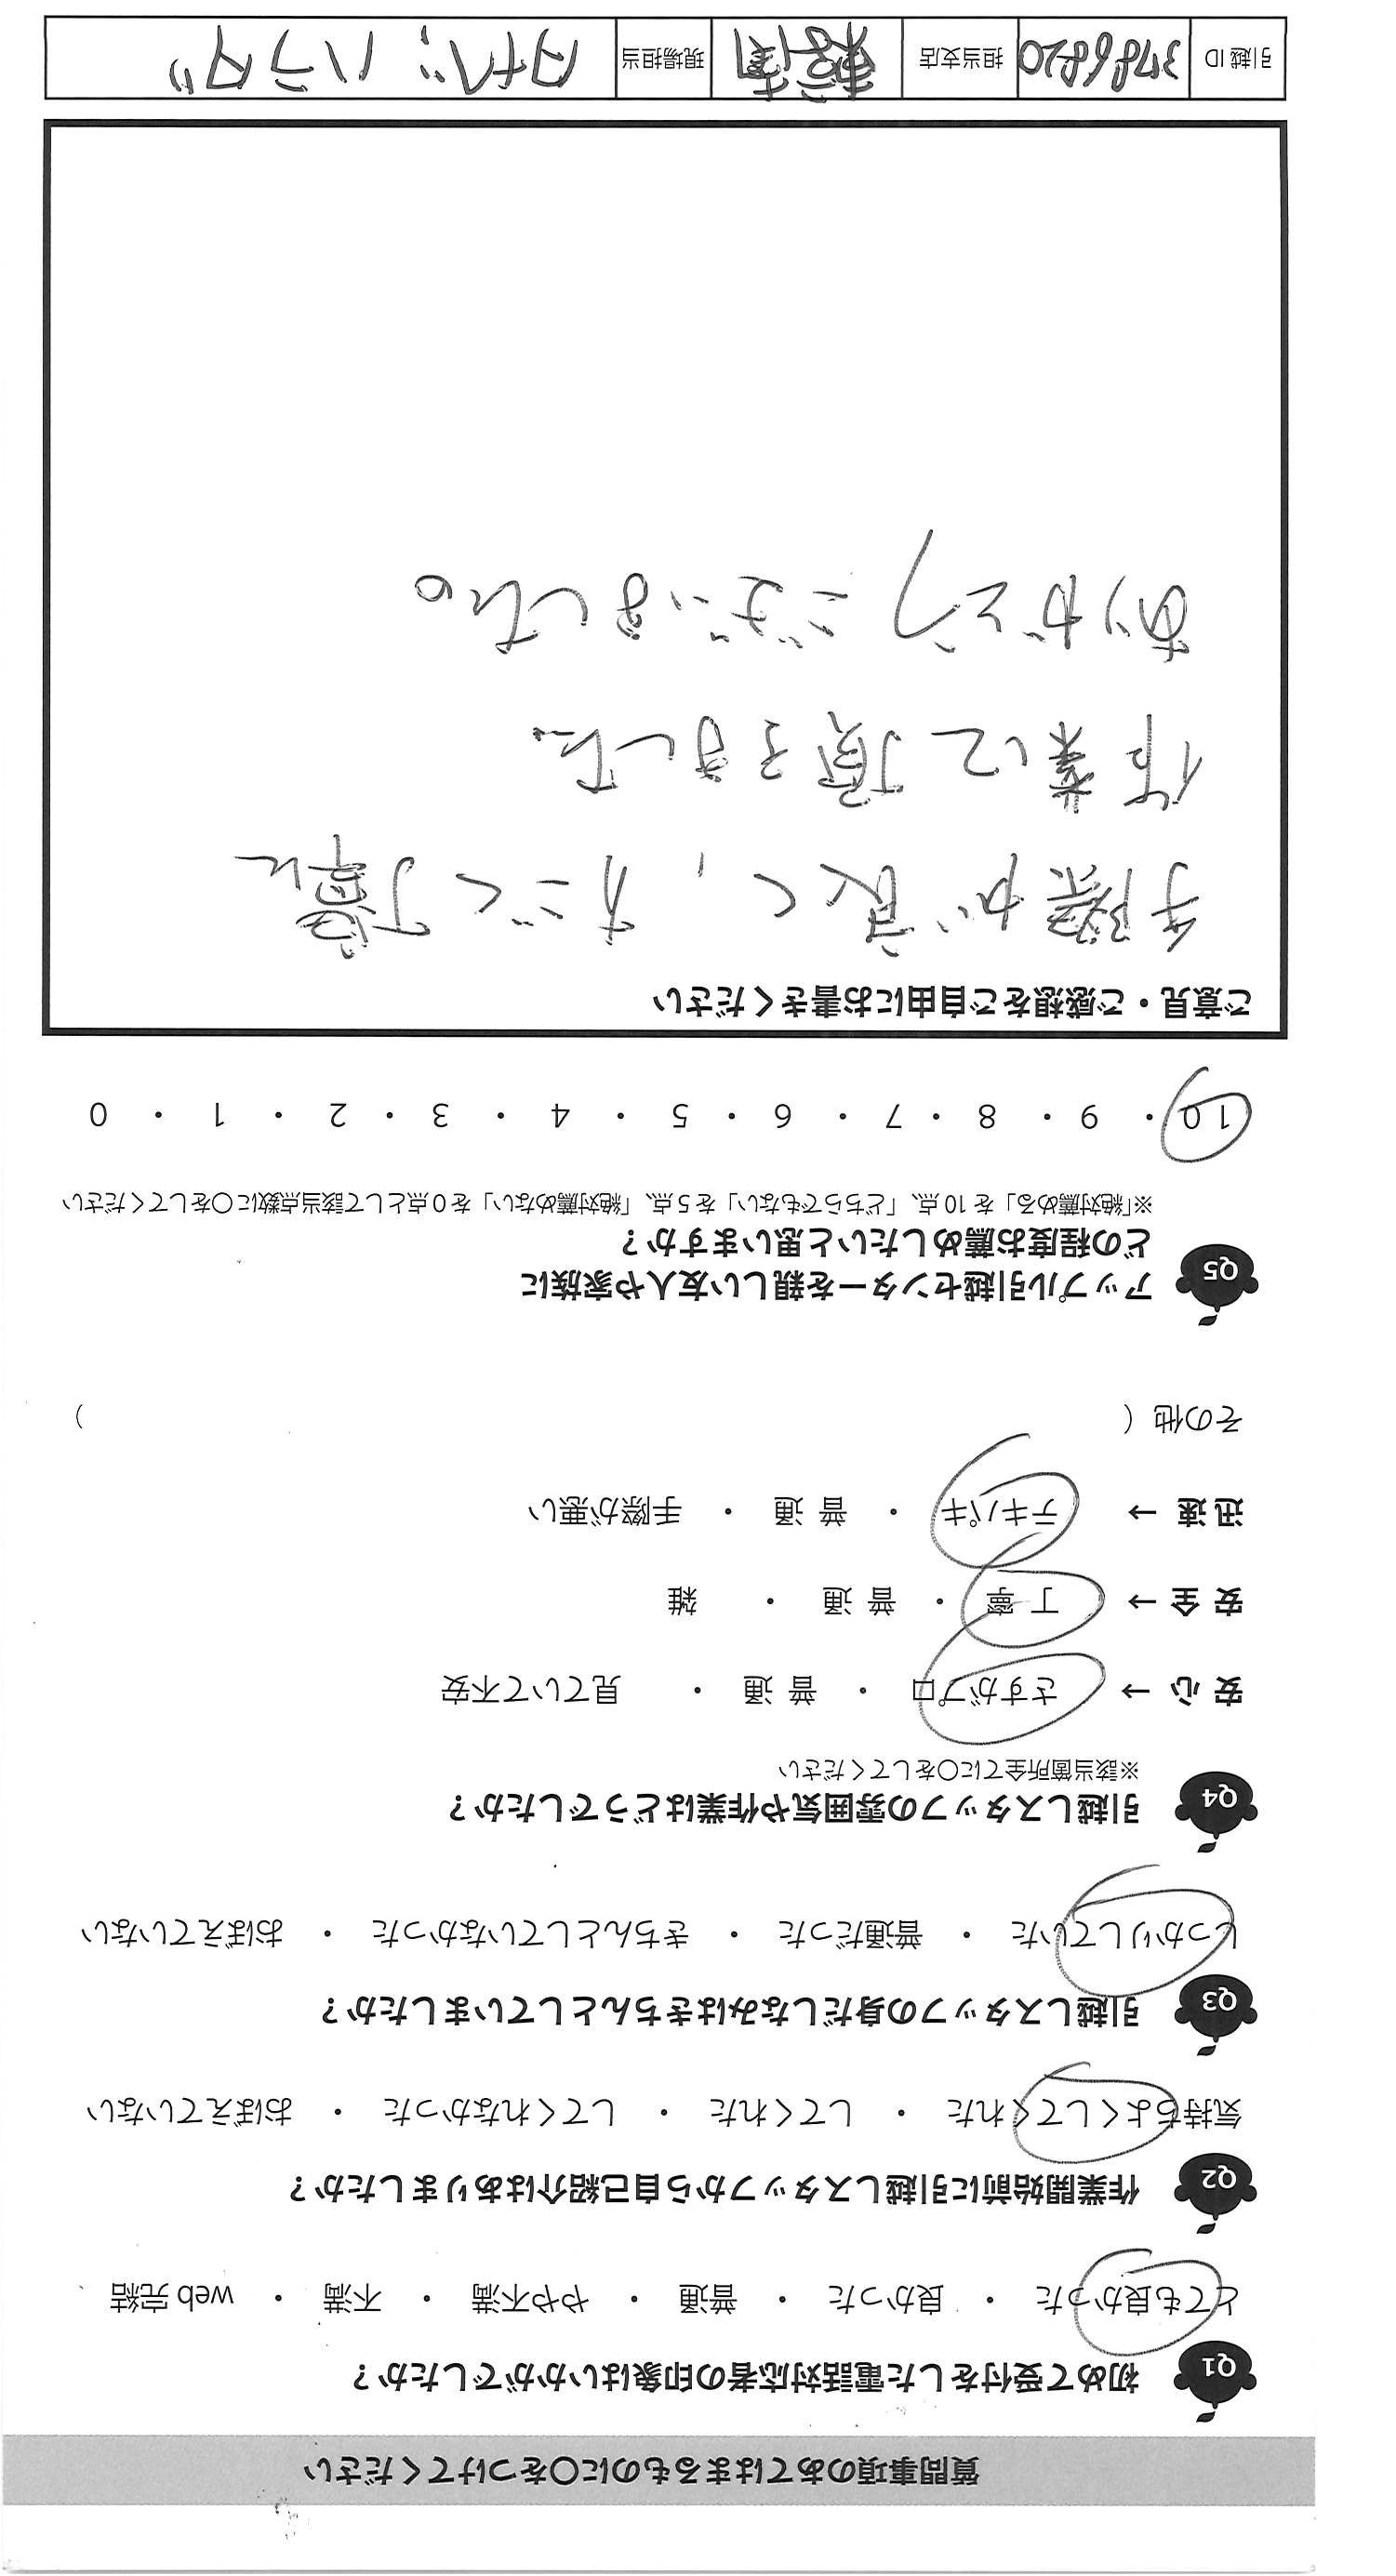 質問事項のあてはまるものに〇をつけてください
Q1 初めて受付をした電話対応者の印象はいかがでしたか？
とても良かった ・ 良かった ・ 普通 ・ やや不満 ・ 不満 ・ web 完結
Q2 作業開始前に引越しスタッフから自己紹介はありましたか？
気持ちよくしてくれた ・ してくれた ・ してくれなかった ・ おぼえていない
Q3 引越しスタッフの身だしなみはきちんとしていましたか？
しっかりしていた ・ 普通だった ・ きちんとしていなかった ・ おぼえていない
Q4 引越しスタッフの雰囲気や作業はどうでしたか？
※該当箇所全てに〇をしてください
安心 → さすがプロ ・ 普通 ・ 見ていて不安
安全 → 丁寧 ・ 普通 ・ 雑
迅速 → テキパキ ・ 普通 ・ 手際が悪い
その他（ ）
Q5 アップル引越センターを親しい友人や家族に
どの程度お薦めしたいと思いますか？
※「絶対薦める」を 10 点、「どちらでもない」を 5 点、「絶対薦めない」を 0 点として該当点数に〇をしてください
10 ・ 9 ・ 8 ・ 7 ・ 6 ・ 5 ・ 4 ・ 3 ・ 2 ・ 1 ・ 0
ご意見・ご感想をご自由にお書きください
手際が良く、すごく丁寧に
作業して頂きました。
ありがとうございました。
引越 ID 3786820 担当支店 現場担当 ハラダ